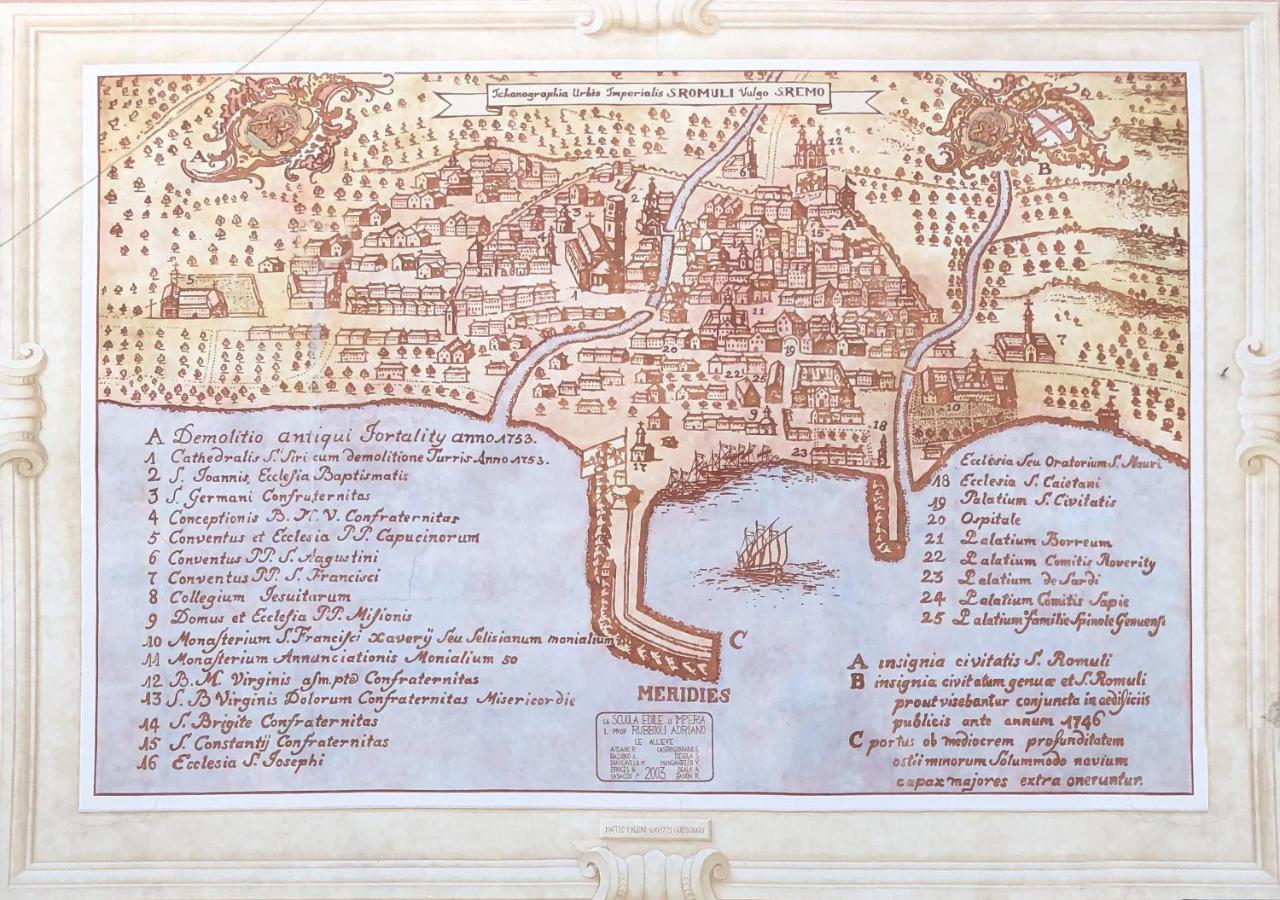 Ichonographia Urbis Imperialis S.ROMULI Vulgo S.REMO
A
B
12
6
2
3
4
15
A
5
1
11
7
20
19
22
25
10
9
18
17
23
A Demolitio antiqui Fortality anno 1753.
1 Cathedralis S. Siri cum demolitione Turris Anno 1753.
2 S. Ioannis Ecclesia Baptismatis
3 S. Germani Confraternitas
4 Conceptionis B. M. V. Confraternitas
5 Conventus et Ecclesia P.P. Capucinorum
6 Conventus PP. S. Agustini
7 Conventus PP. S. Francisci
8 Collegium Iesuitarum
9 Domus et Ecclesia PP. Misionis
10 Monasterium S. Francisci Xaverij Seu Selisianum monialium
11 Monasterium Annunciationis Monialium so
12 B. M. Virginis asm.pto Confraternitas
13 S. B Virginis Dolorum Confraternitas Misericordie
14 S. Brigite Confraternitas
15 S. Constantij Confraternitas
16 Ecclesia S. Iosephi
Ecclesia Seu Oratorium S. Mauri
18 Ecclesia S. Caietani
19 Palatium S. Civitatis
20 Ospitale
21 Palatium Borreum
22 Palatium Comitis Roverity
23 Palatium de Sardi
24 Palatium Comitis Sapie
25 Palatium familie Spinole Genuensi
A insignia civitatis S. Romuli
B insignia civitatum genuæ et S. Romuli
prout visebantur conjuncta in ædificiis
publicis ante annum 1746
C portus ob mediocrem profunditatem
ostii minorum Solummodo navium
capax majores extra oneruntur.
C
MERIDIES
LA SCUOLA EDILE DI IMPERIA
IL PROF RUBBIOLI ADRIANO
LE ALLIEVE
2003
MATTEO VINZONI CARTOGRAFO